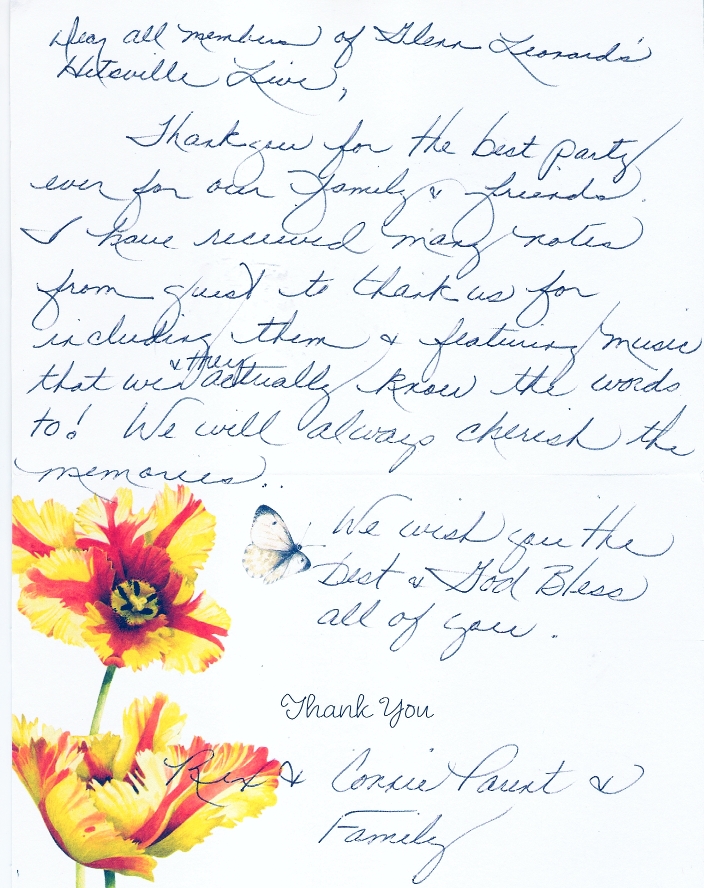 Dear all members of Glenn Leonard's
Hitsville Live,
Thank you for the best party
ever for our family & friends.
I have received many notes
from guest to thank us for
including them & featuring music
that we & they actually know the words
to! We will always cherish the
memories..
We wish you the
best & God Bless
all of you.
Thank You
Rex & Connie Parent &
Family